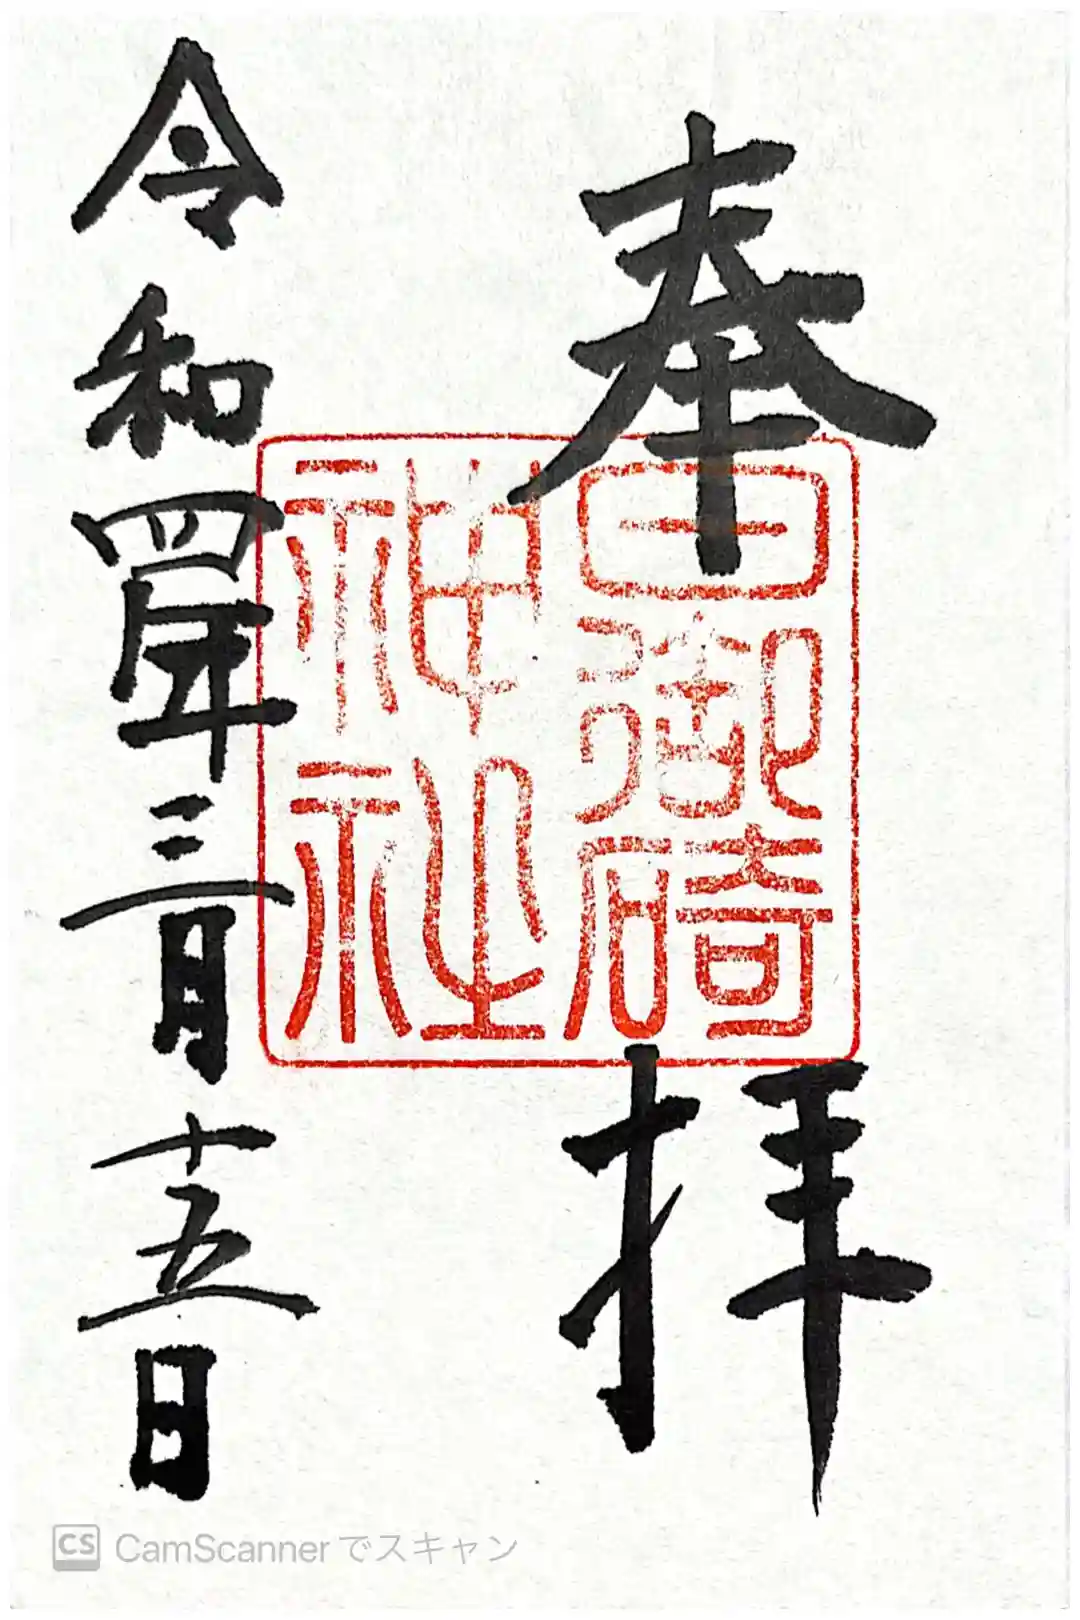 奉拝
日御碕
神社
令和四年三月十五日
CS CamScannerでスキャン